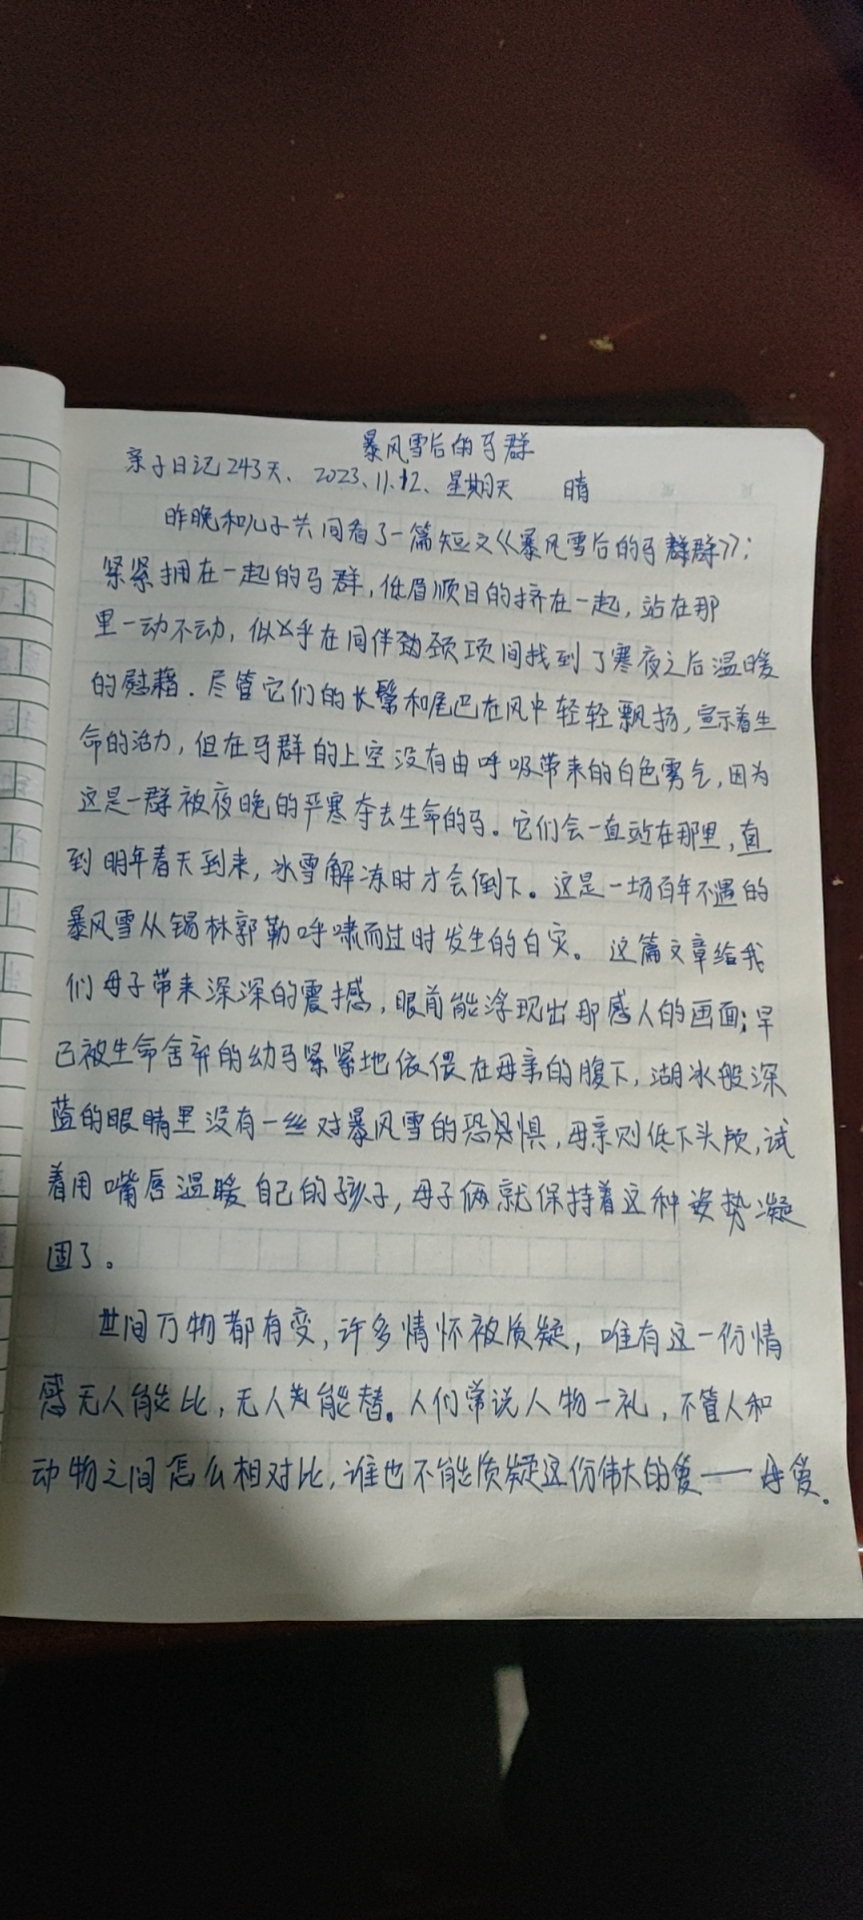 暴风雪后的马群
亲子日记243天、2023、11.12、星期天 晴
昨晚和儿子共同看了一篇短文《暴风雪后的马群群》:
紧紧拥在一起的马群,低眉顺目的挤在一起,站在那
里一动不动,似乎在同伴劲颈项间找到了寒夜之后温暖
的慰藉.尽管它们的长鬃和尾巴在风中轻轻飘扬,宣示着生
命的活力,但在马群的上空没有由呼吸带来的白色雾气,因为
这是一群被夜晚的严寒夺去生命的马。它们会一直站在那里,直
到明年春天到来,冰雪解冻时才会倒下。这是一场百年不遇的
暴风雪从锡林郭勒呼啸而过时发生的白灾。这篇文章给我
们母子带来深深的震撼,眼前能浮现出那感人的画面;早
已被生命舍弃的幼马紧紧地依偎在母亲的腹下,湖冰般深
蓝的眼睛里没有一丝对暴风雪的恐惧,母亲则低下头颅,试
着用嘴唇温暖自己的孩子,母子俩就保持着这种姿势凝
固了。
世间万物都有变,许多情怀被质疑,唯有这一份情
感无人能比,无人能替。人们常说人物一礼,不管人和
动物之间怎么相对比,谁也不能质疑这份伟大的爱——母爱.